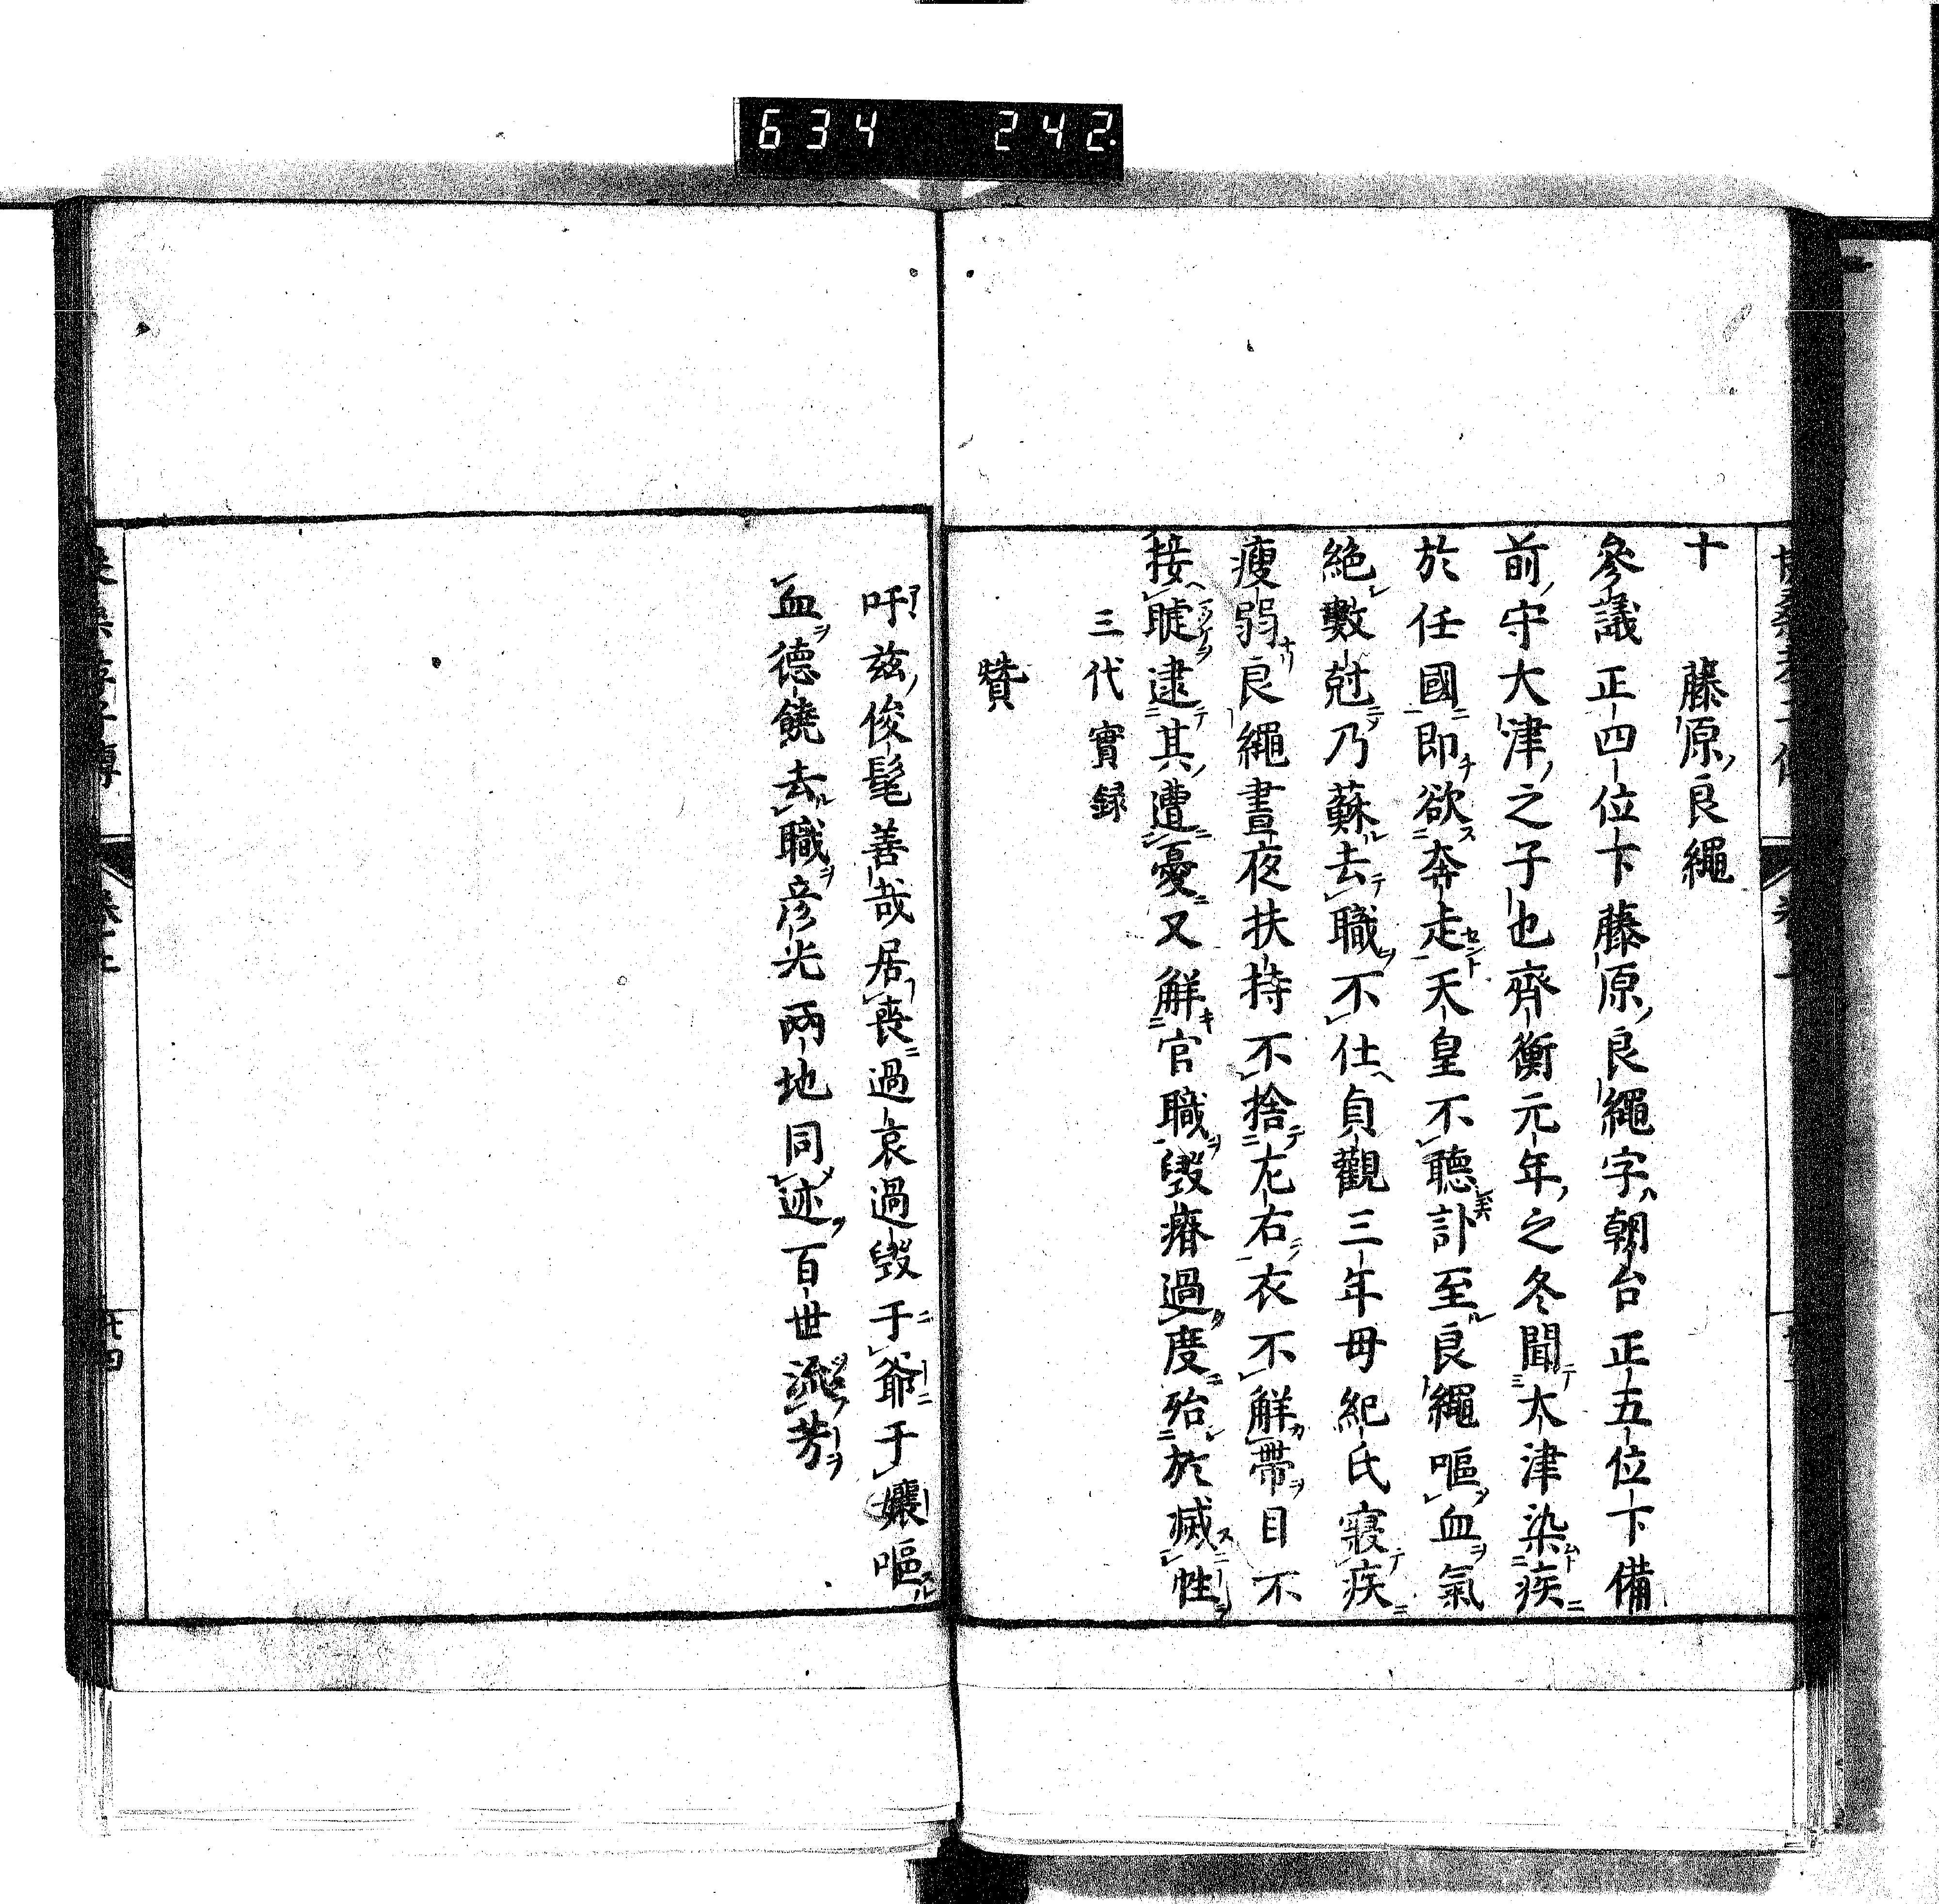 634 242.
十 藤原良繩
參議正四位下藤原良繩字朝台正五位下備
前守大津之子也齊衡元年之冬聞大津染疾
於任國即欲奔走天皇不聽訃至良繩嘔血氣
絶數尅乃蘇去職不仕貞觀三年母紀氏寢疾
瘦弱良繩晝夜扶持不捨左右衣不解帶目不
接睫逮其遭憂又解官職毀瘠過度殆於滅性
三代實録
贊
吁茲俊髦善哉居喪過哀過毀于爺于孃嘔
血德饒去職彦光兩地同迹百世流芳